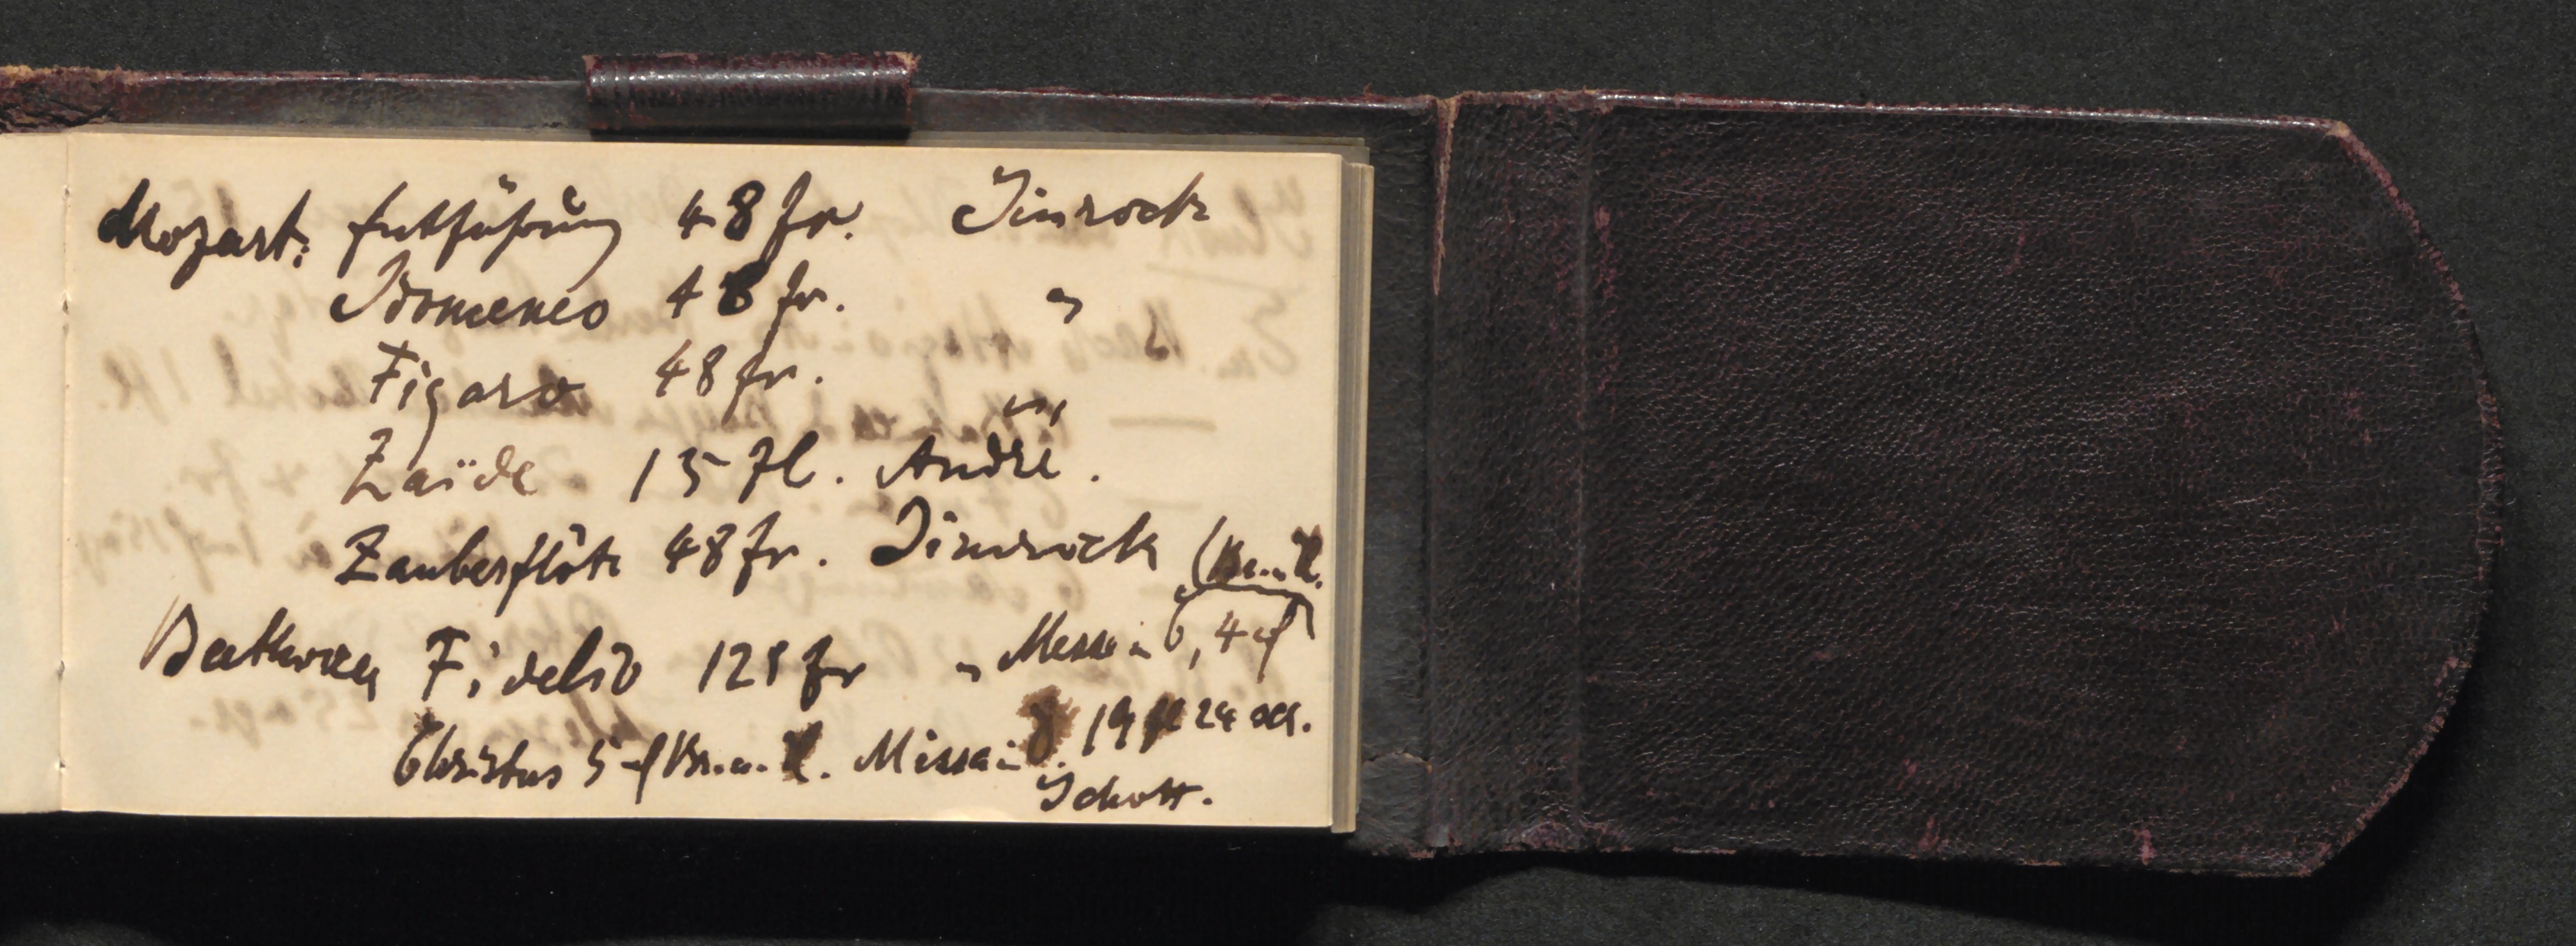 Mozart: Entführung 48 fr. Simrock
Idomeneo 48 fr. "
Figaro 48 fr. "
Zaïde 15 fl. André.
Zauberflöte 48 fr. Simrock (Br. u. H.
Beethoven Fidelio 128 fr " Messe in C, 4
Christus 5 Br. u. H. Missa in D. 19 fl 24
Schott.